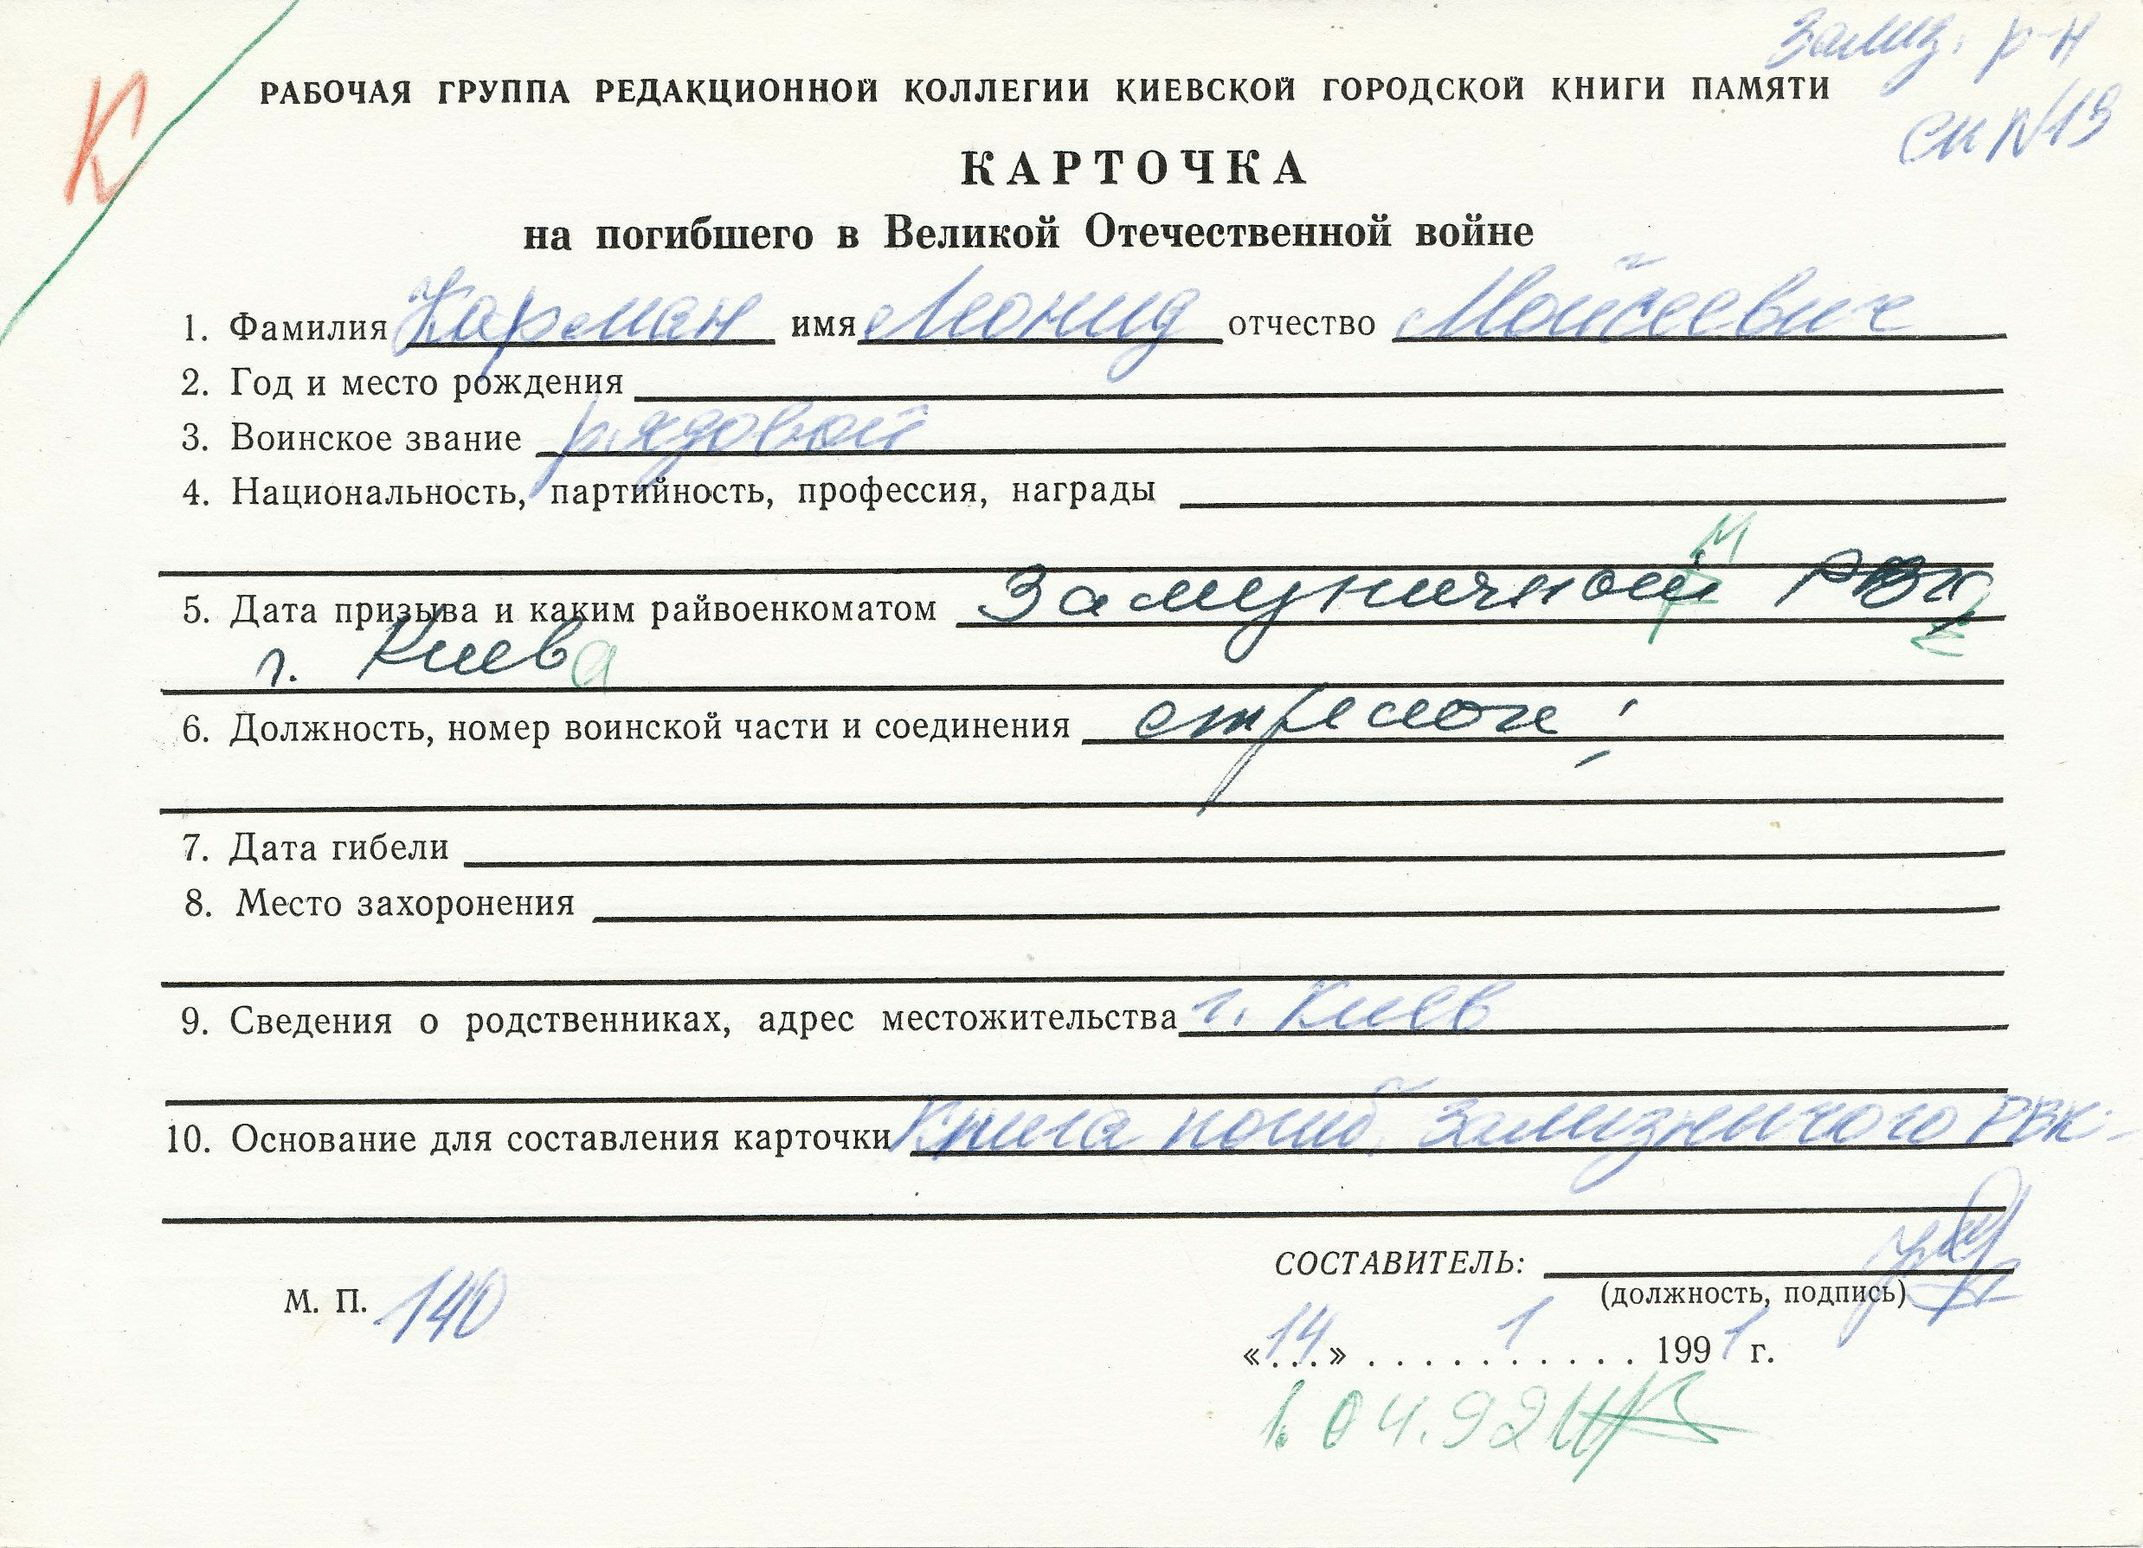 Зализ. р-н
РАБОЧАЯ ГРУППА РЕДАКЦИОННОЙ КОЛЛЕГИИ КИЕВСКОЙ ГОРОДСКОЙ КНИГИ ПАМЯТИ
сп N13
К
КАРТОЧКА
на погибшего в Великой Отечественной войне
1. Фамилия Карман имя Леонид отчество Мойсеевич
2. Год и место рождения
3. Воинское звание рядовой
4. Национальность, партийность, профессия, награды
5. Дата призыва и каким райвоенкоматом Зализничный РВК
г. Киева
6. Должность, номер воинской части и соединения стрелок;
7. Дата гибели
8. Место захоронения
9. Сведения о родственниках, адрес местожительства г. Киев
10. Основание для составления карточки Книга погиб. Зализничого РВК-
СОСТАВИТЕЛЬ:
(должность, подпись)
М. П. 140
«14» 1 1991 г.
1.04.92